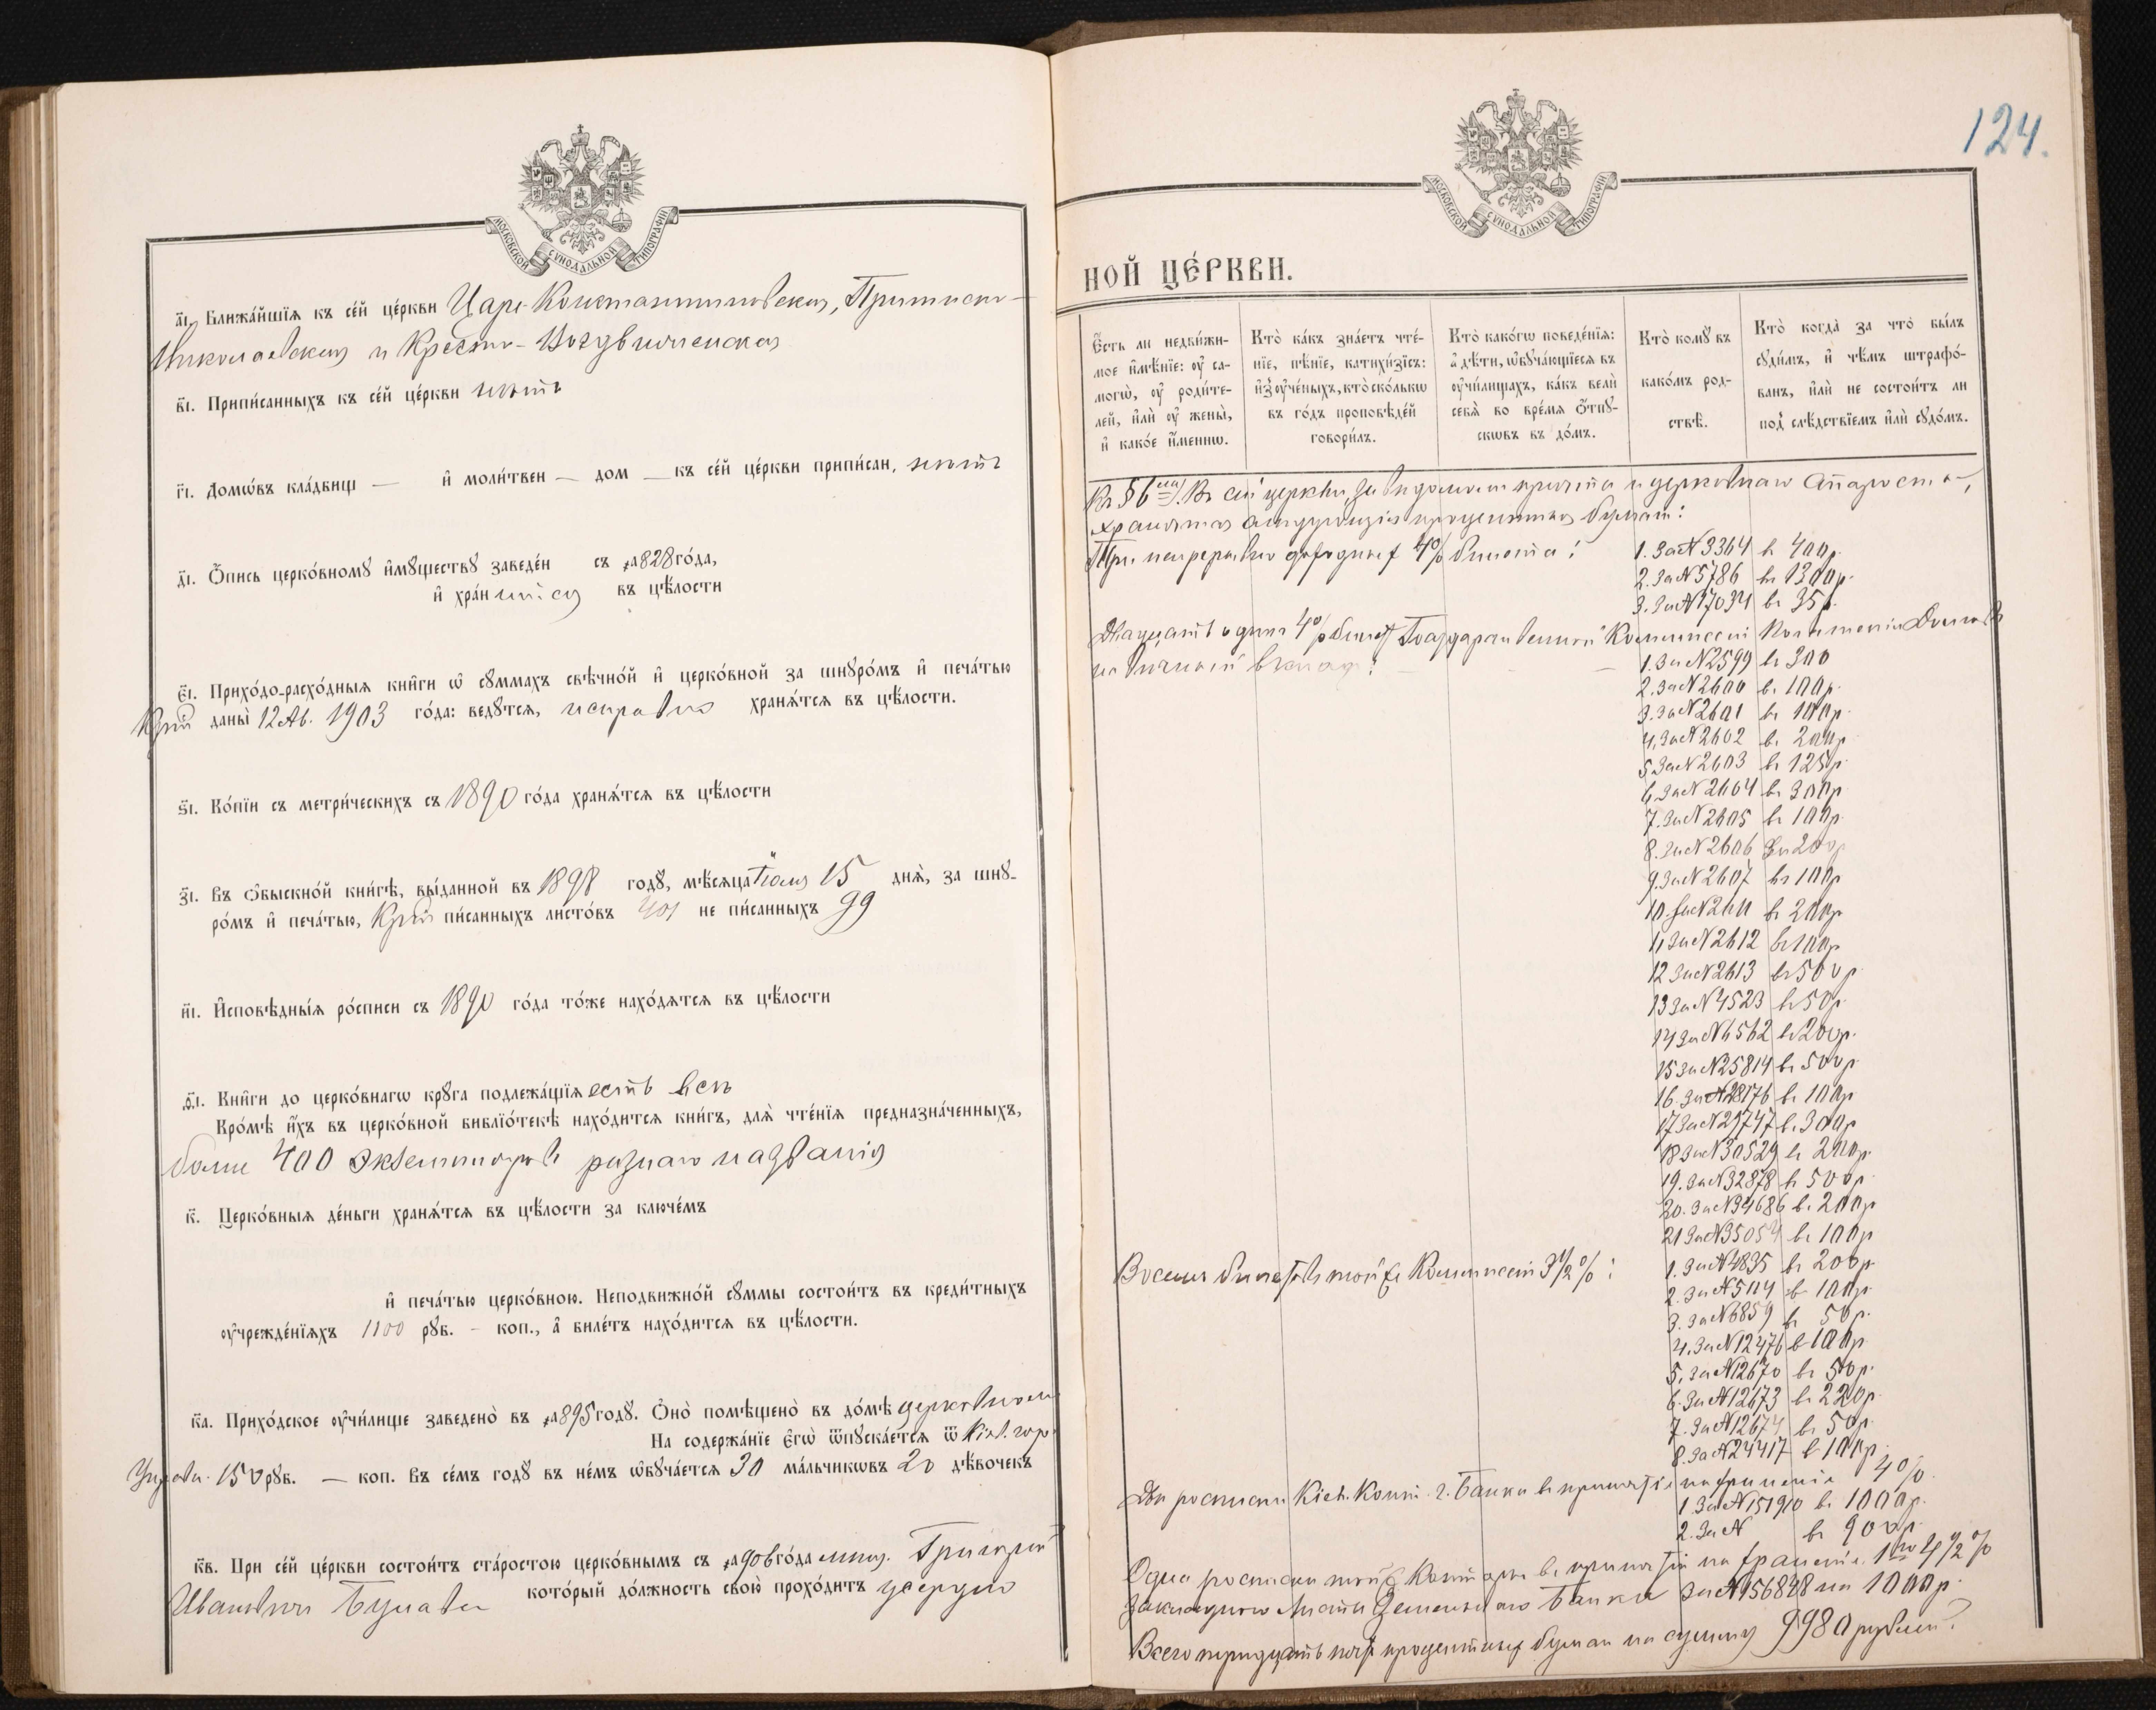 МОСКОВСКОЙ СѴНОДАЛЬНОЙ ТИПОГРАФІИ
а҃і. Ближа́йшїѧ къ се́й це́ркви Царе-Константиновская, Притиско-
Николаевская и Кресто-Воздвиженская
в҃і. Припи́санныхъ къ се́й це́ркви нѣтъ
г҃і. Домѡ́въ кла́дбищ — и҆ моли́твен — дом — къ се́й це́ркви припи́сан, нѣтъ
д҃і. Ѻ҆́пись церко́вномꙋ и҆мꙋ́ществꙋ заведе́н съ ҂а828 го́да,
и҆ храни́тся въ цѣ́лости
є҃і. Прихо́до-расхо́дныѧ кни̑ги ѡ҆ сꙋ́ммахъ свѣчно́й и҆ церко́вной за шнꙋро́мъ и҆ печа́тью
Кон. даны̀ 12 Ав. 1903 го́да: ведꙋ́тсѧ, исправно хранѧ́тсѧ въ цѣ́лости.
ѕ҃і. Ко́пїи съ метри́ческихъ съ 1890 го́да хранѧ́тсѧ въ цѣ́лости
з҃і. Въ ѡ҆быскно́й кни́гѣ, вы́данной въ 1898 годꙋ̀, мѣ́сѧца Іюля 15 днѧ̀, за шнꙋ-
ро́мъ и҆ печа́тью, пи́санныхъ листо́въ 401 не пи́санныхъ 99
и҃і. И҆сповѣ́дныѧ ро́списи съ 1890 го́да то́же нахо́дѧтсѧ въ цѣ́лости
ѳ҃і. Кни̑ги до церко́внагѡ крꙋ́га подлежа́щїѧ есть всѣ
Кро́мѣ и҆́хъ въ церко́вной библїо́текѣ нахо́дитсѧ кни́гъ, длѧ̀ чте́нїѧ предназна́ченныхъ,
болѣе 400 экземпляровъ разнаго названія
к҃. Церко́вныѧ де́ньги хранѧ́тсѧ въ цѣ́лости за ключе́мъ
и҆ печа́тью церко́вною. Неподвижно́й сꙋ́ммы состои́тъ въ креди́тныхъ
ᲂу҆чрежде́нїѧхъ 1100 рꙋб. – коп., а҆ биле́тъ нахо́дитсѧ въ цѣ́лости.
к҃а. Прихо́дское ᲂу҆чи́лище заведено̀ въ ҂а895 годꙋ̀. Ѻ҆но̀ помѣщено̀ въ до́мѣ церковномъ
На содержа́нїе є҆гѡ̀ ѿпꙋска́етсѧ ѿ Кіев. гор.
Управы. 150 рꙋб. — коп. Въ се́мъ годꙋ̀ въ не́мъ ѡ҆бꙋча́етсѧ 30 ма́льчикѡвъ 20 дѣ́вочекъ
к҃в. При се́й це́ркви состои́тъ ста́ростою церко́внымъ съ ҂а906 го́да мѣщ. Григорій
Ивановичъ Булава кото́рый до́лжность свою̀ прохо́дитъ усердно
124.
МОСКОВСКОЙ СѴНОДАЛЬНОЙ ТИПОГРАФІИ
НОЙ ЦЕ́РКВИ.
Є҆́сть ли недви́жи-
мое и҆мѣ́нїе: ᲂу҆ са-
могѡ̀, ᲂу҆ роди́те-
лей, и҆лѝ ᲂу҆ жены̀,
и҆ како́е и҆́меннѡ.
Кто̀ ка́къ зна́етъ чте́-
нїе, пѣ́нїе, катихи́зїсъ:
и҆з̾ ᲂу҆че́ныхъ, кто̀ ско́лькѡ
въ го́дъ проповѣ́дей
говори́лъ.
Кто̀ како́гѡ поведе́нїѧ:
а҆ дѣ́ти, ѡ҆бꙋча́ющїесѧ въ
ᲂу҆чи́лищахъ, ка́къ велѝ
себѧ̀ во вре́мѧ ѻ҆́тпꙋ-
скѡвъ въ до́мъ.
Кто̀ комꙋ̀ въ
како́мъ род-
ствѣ̀.
Кто̀ когда̀ за что̀ бы́лъ
сꙋди́мъ, и҆ чѣ́мъ штрафо́-
ванъ, и҆лѝ не состои́тъ ли
под̾ слѣ́дствїемъ и҆лѝ сꙋдо́мъ.
Въ сей церкви, за вѣдомомъ причта и церковнаго старосты,
хранятся слѣдующія процентныя бумаги:
Три непрерывно доходныхъ 4% билета:
1. За № 3364 въ 400р.
2. За № 5786 въ 1300р.
3. За № 17034 въ 35р.
Двадцать одинъ 4% билет Государственной Коммиссіи Погашенія Долговъ
на вѣчный вкладъ:
1. За № 2599 въ 300
2. За № 2600 въ 100р.
3. За № 2601 въ 100р.
4. За № 2602 въ 200р.
5. За № 2603 въ 125р.
6. За № 2604 въ 300р.
7. За № 2605 въ 100р.
8. За № 2606 въ 200р
9. За № 2607 въ 100р
10. За № 2611 въ 200р
11 За № 2612 въ 100р
12 За № 2613 въ 500р.
13 За № 4523 въ 50р.
14 За № 6562 въ 200р.
15 За № 25814 въ 500р
16. За № 28176 въ 100р
17 За № 29747 въ 300р
18 За № 30529 въ 200р.
19. За № 32878 въ 500р.
20. За № 34686 въ 200р
21 За № 35054 въ 100р
Восемь билетовъ той же Коммиссіи 3 1/2 %:
1. За № 4835 въ 200р
2. За № 5114 въ 100р.
3. За № 6859 въ 50р.
4. За № 12476 в 100р
5. За № 12670 въ 500р.
6. За № 12673 въ 220р.
7. За № 12674 въ 50р.
8. За № 24417 в 100р.
Двѣ росписки Кіев. Конт. г. Банка въ принятіи на храненіе 4%.
1. За № 151910 въ 1000р.
2. За № въ 900р.
Одна росписка той же Конторы въ принятіи на храненіе 1го 4 1/2 %
закладного листа Земельнаго Банка За № 156848 на 1000р.
Всего тридцать пять процентныхъ бумаг на сумму 9980 рублей.